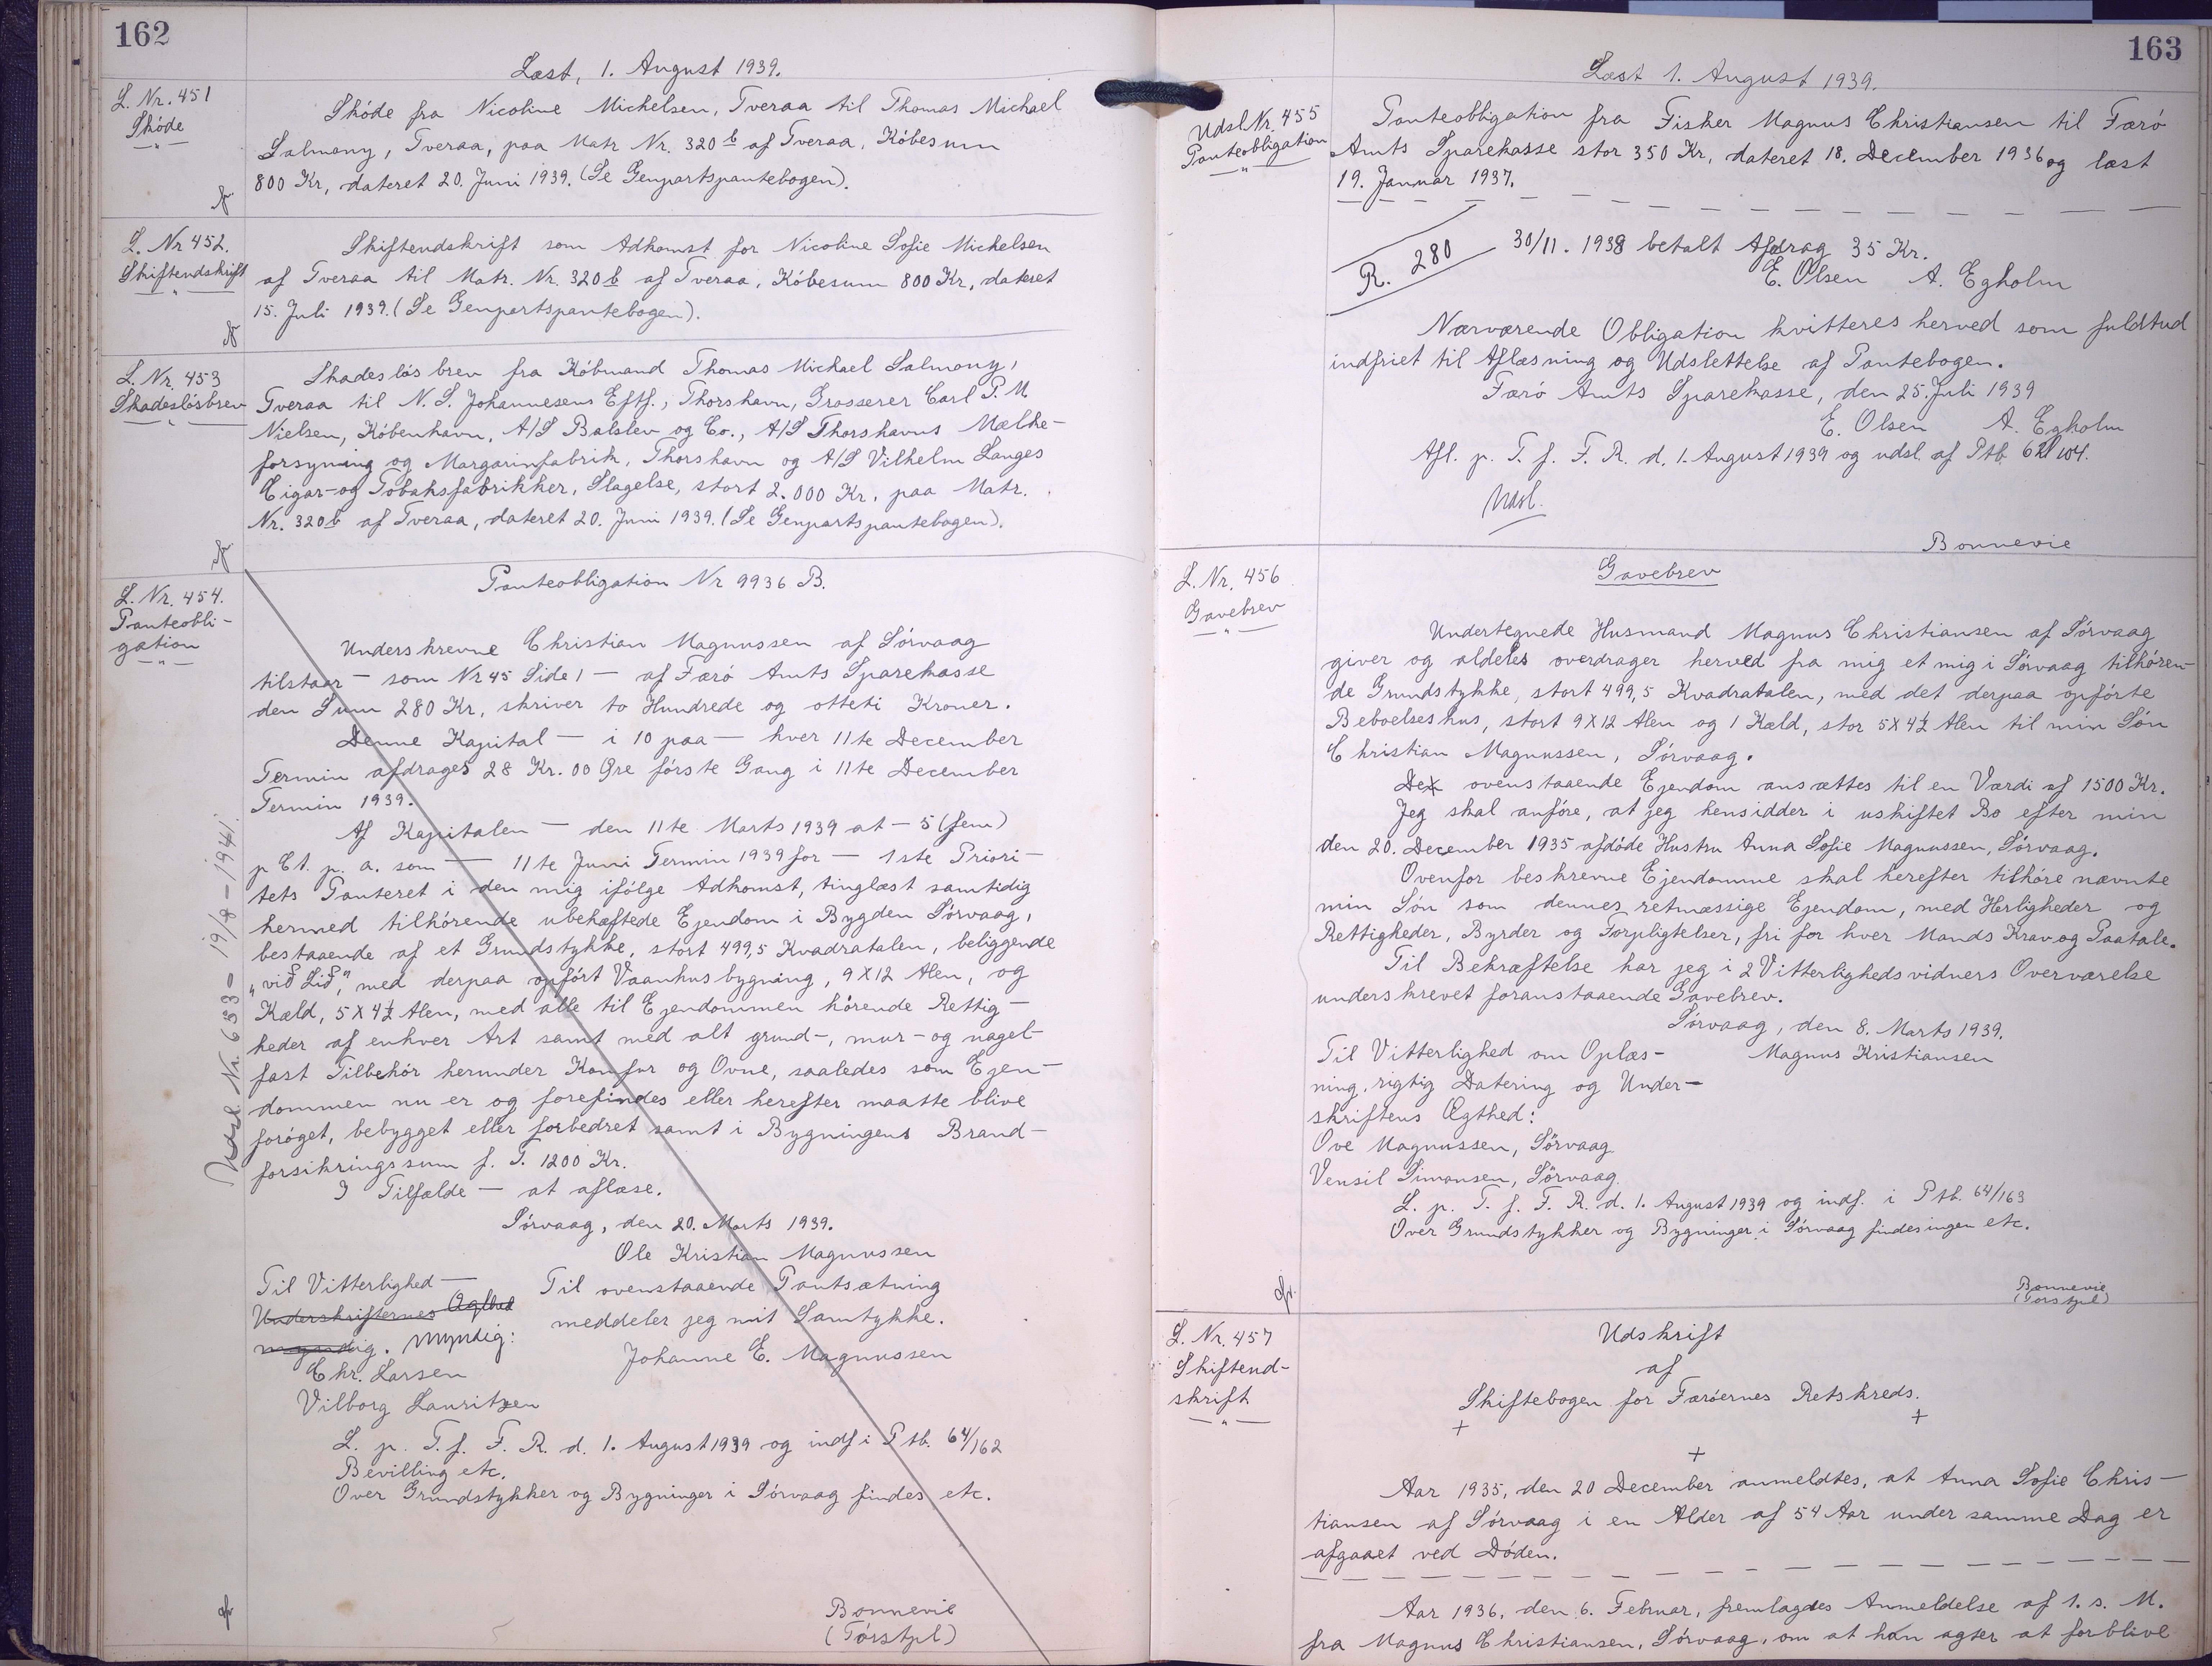 162
Læst, 1. August 1939.
L. Nr. 451
Skóde
Skóde fra Nicoline Michelsen, Tveraa til Thomas Michael
Salmony, Tveraa, paa Matr Nr. 320 b af Tveraa, Kóbesum
800 Kr, dateret 20. Juni 1939. (Se Genpartspantebogen).
L. Nr 452.
Skiftendskrift
Skiftendskrift som Adkomst for Nicoline Sofie Michelsen
af Tveraa til Matr. Nr. 320 b af Tveraa, Kóbesum 800 Kr, dateret
15. Juli 1939. (Se Genpartspantebogen).
L. Nr. 453
Skadeslósbrev
Skadeslósbrev fra Kóbmand Thomas Michael Salmony,
Tveraa til N. S. Johannesens Eftf., Thorshavn, Grosserer Carl P. M.
Nielsen, Kóbenhavn, A/S Balslev og Co., A/S Thorshavns Mælke-
forsyning og Margarinfabrik, Thorshavn og A/S Vilhelm Langes
Cigar- og Tobaksfabrikker, Slagelse, stort 2.000 Kr. paa Matr.
Nr. 320 b af Tveraa, dateret 20. Juni 1939. (Se Genpartspantebogen).
L. Nr. 454.
Panteobli-
gation
Panteobligation Nr 9936 B.
Underskrevne Christian Magnussen af Sórvaag
tilstaar – som Nr 45 Side 1 – af Færó Amts Sparekasse
den Sum 280 Kr, skriver to Hundrede og otteti Kroner.
Denne Kapital – i 10 paa – hver 11te December
Termin afdrages 28 Kr. 00 Øre fórste Gang i 11te December
Termin 1939.
Af Kapitalen – den 11te Marts 1939 at – 5 (fem)
p Ct. p. a. som – 11te Juni Termin 1939 for – 1ste Priori-
tets Panteret i den mig ifólge Adkomst, tinglæst samtidig
hermed tilhórende ubehæftede Ejendom i Bygden Sórvaag,
bestaaende af et Grundstykke, stort 499,5 Kvadratalen, beliggende
„við Lið", med derpaa opfórt Vaanhusbygning, 9 X 12 Alen, og
Kæld, 5 X 4½ Alen, med alle til Ejendommen hórende Rettig-
heder af enhver Art samt med alt grund-, mur- og nagel-
fast Tilbehór herunder Komfur og Ovne, saaledes som Ejen-
dommen nu er og forefindes eller herefter maatte blive
foróget, bebygget eller forbedret samt i Bygningens Brand-
forsikringssum f. T. 1200 Kr.
I Tilfælde – at aflæse.
Sórvaag, den 20. Marts 1939.
Ole Kristian Magnussen
Til Vitterlighed –
Underskrifternes Ægthed
myndig. Myndig:
Chr. Larsen
Vilborg Lauritzen
Til ovenstaaende Pantsætning
meddeler jeg mit Samtykke.
Johanne E. Magnussen
L. p. T. f. F. R. d. 1. August 1939 og indf i Ptb. 64/162
Bevilling etc.
Over Grundstykker og Bygninger i Sórvaag findes etc.
Bonnevie
(Fórstpl)
Udsl Nr. 653 – 19/8 – 1941.
163
Læst 1. August 1939.
Udsl. Nr. 455
Panteobligation
Panteobligation fra Fisker Magnus Christiansen til Færó
Amts Sparekasse stor 350 Kr, dateret 18. December 1936 og læst
19. Januar 1937.
R. 280
30/11. 1938 betalt Afdrag 35 Kr.
E. Olsen A. Egholm
Nærværende Obligation kvitteres herved som fuldtud
indfriet til Aflæsning og Udslettelse af Pantebogen.
Færó Amts Sparekasse, den 25. Juli 1939
E. Olsen A. Egholm
Afl. p. T. f. F. R. d. 1. August 1939 og udsl. af Ptb 62/104.
Udsl.
Bonnevie
L. Nr. 456
Gavebrev
Gavebrev
Undertegnede Husmand Magnus Christiansen af Sórvaag
giver og aldeles overdrager herved fra mig et mig i Sórvaag tilhóren-
de Grundstykke, stort 499,5 Kvadratalen, med det derpaa opfórte
Beboelseshus, stort 9 X 12 Alen og 1 Kæld, stor 5 X 4½ Alen til min Són
Christian Magnussen, Sórvaag.
Den ovenstaaende Ejendom ansættes til en Værdi af 1500 Kr.
Jeg skal anfóre, at jeg hensidder i uskiftet Bo efter min
den 20. December 1935 afdóde Hustru Anna Sofie Magnussen, Sórvaag.
Ovenfor beskrevne Ejendomme skal herefter tilhóre nævnte
min Són som dennes retmæssige Ejendom, med Herligheder og
Rettigheder, Byrder og Forpligtelser, fri for hver Mands Krav og Paatale.
Til Bekræftelse har jeg i 2 Vitterlighedsvidners Overværelse
underskrevet foranstaaende Gavebrev.
Sórvaag, den 8. Marts 1939.
Magnus Kristiansen
Til Vitterlighed om Oplæs-
ning, rigtig Datering og Under-
skriftens Ægthed:
Ove Magnussen, Sörvaag
Vensil Simonsen, Sörvaag.
L. p. T. f. F. R. d. 1. August 1939 og indf. i Ptb. 64/163
Over Grundstykker og Bygninger i Sórvaag findes ingen etc.
Bonnevie
(Fórstpl)
L. Nr. 457
Skiftend-
skrift
Udskrift
af
Skiftebogen for Færóernes Retskreds.
+ + +
Aar 1935, den 20 December anmeldtes, at Anna Sofie Chris-
tiansen af Sórvaag i en Alder af 54 Aar under samme Dag er
afgaaet ved Dóden.
Aar 1936, den 6. Februar, fremlagdes Anmeldelse af 1. s. M.
fra Magnus Christiansen, Sórvaag, om at han agter at forblive